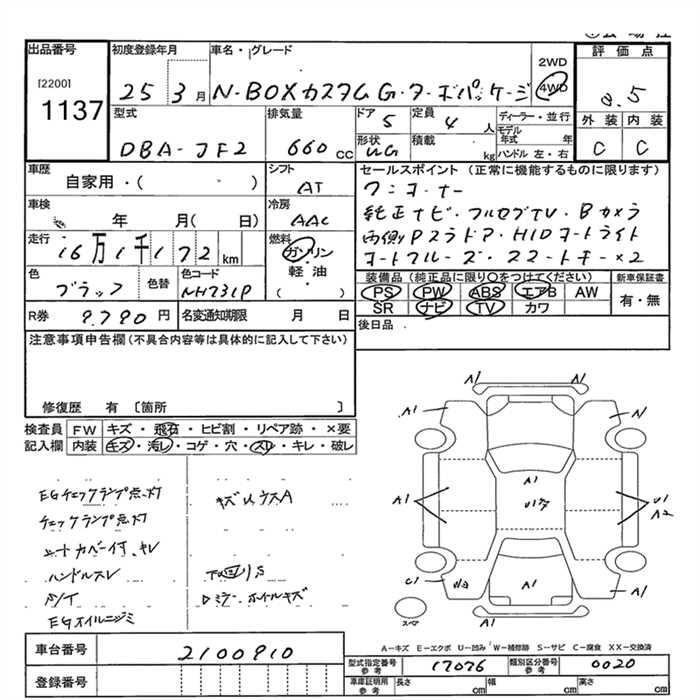 出品番号
[2200]
1137
初度登録年月
25 3月
車名・グレード
N-BOXカスタム G・ターボパッケージ
2WD
4WD
評価点
3.5
外装 内装
C C
型式
DBA-JF2
排気量
660 cc
ドア 5
定員 4 人
形状
積載 kg
ディーラー・並行
モデル年式 年
ハンドル 左・右
車歴
自家用・( )
シフト
AT
車検
年 月( 日)
冷房
AAC
走行
16万1千172 km
燃料
ガソリン
軽・油
( )
色
ブラック
色替
色コード
NH731P
R券 9.790 円
名変通知期限 月 日
セールスポイント(正常に機能するものに限ります)
ワンオーナー
純正ナビ・フルセグTV・Bカメラ
両側Pスラドア・HIDオートライト
オートクルーズ・スマートキー×2
装備品(純正品に限り○をつけてください)
PS PW ABS エアB AW
SR ナビ TV カワ
新車保証書
有・無
後日品
注意事項申告欄(不具合内容等は具体的に記入して下さい)
修復歴 有 〔箇所 〕
検査員記入欄
FW キズ・飛石・ヒビ割・リペア跡・×要
内装 キズ・汚レ・コゲ・穴・スレ・キレ・破レ
EGチェックランプ点灯
チェックランプ点灯
シートカバー付、キレ
ハンドルスレ
S/T
EGオイルニジミ
キズUウスA
下回リS
ミラー ホイルキズ
A1 A1
A1
A1
A1
U1
A2
C1
A1
A1
A1
A1
スペア
A-キズ E-エクボ U-凹み W-補修跡 S-サビ C-腐食 XX-交換済
車台番号 2100910
登録番号
型式指定番号 参考 17076
類別区分番号 参考 0020
車庫証明用 参考 長さ cm 幅 cm 高さ cm